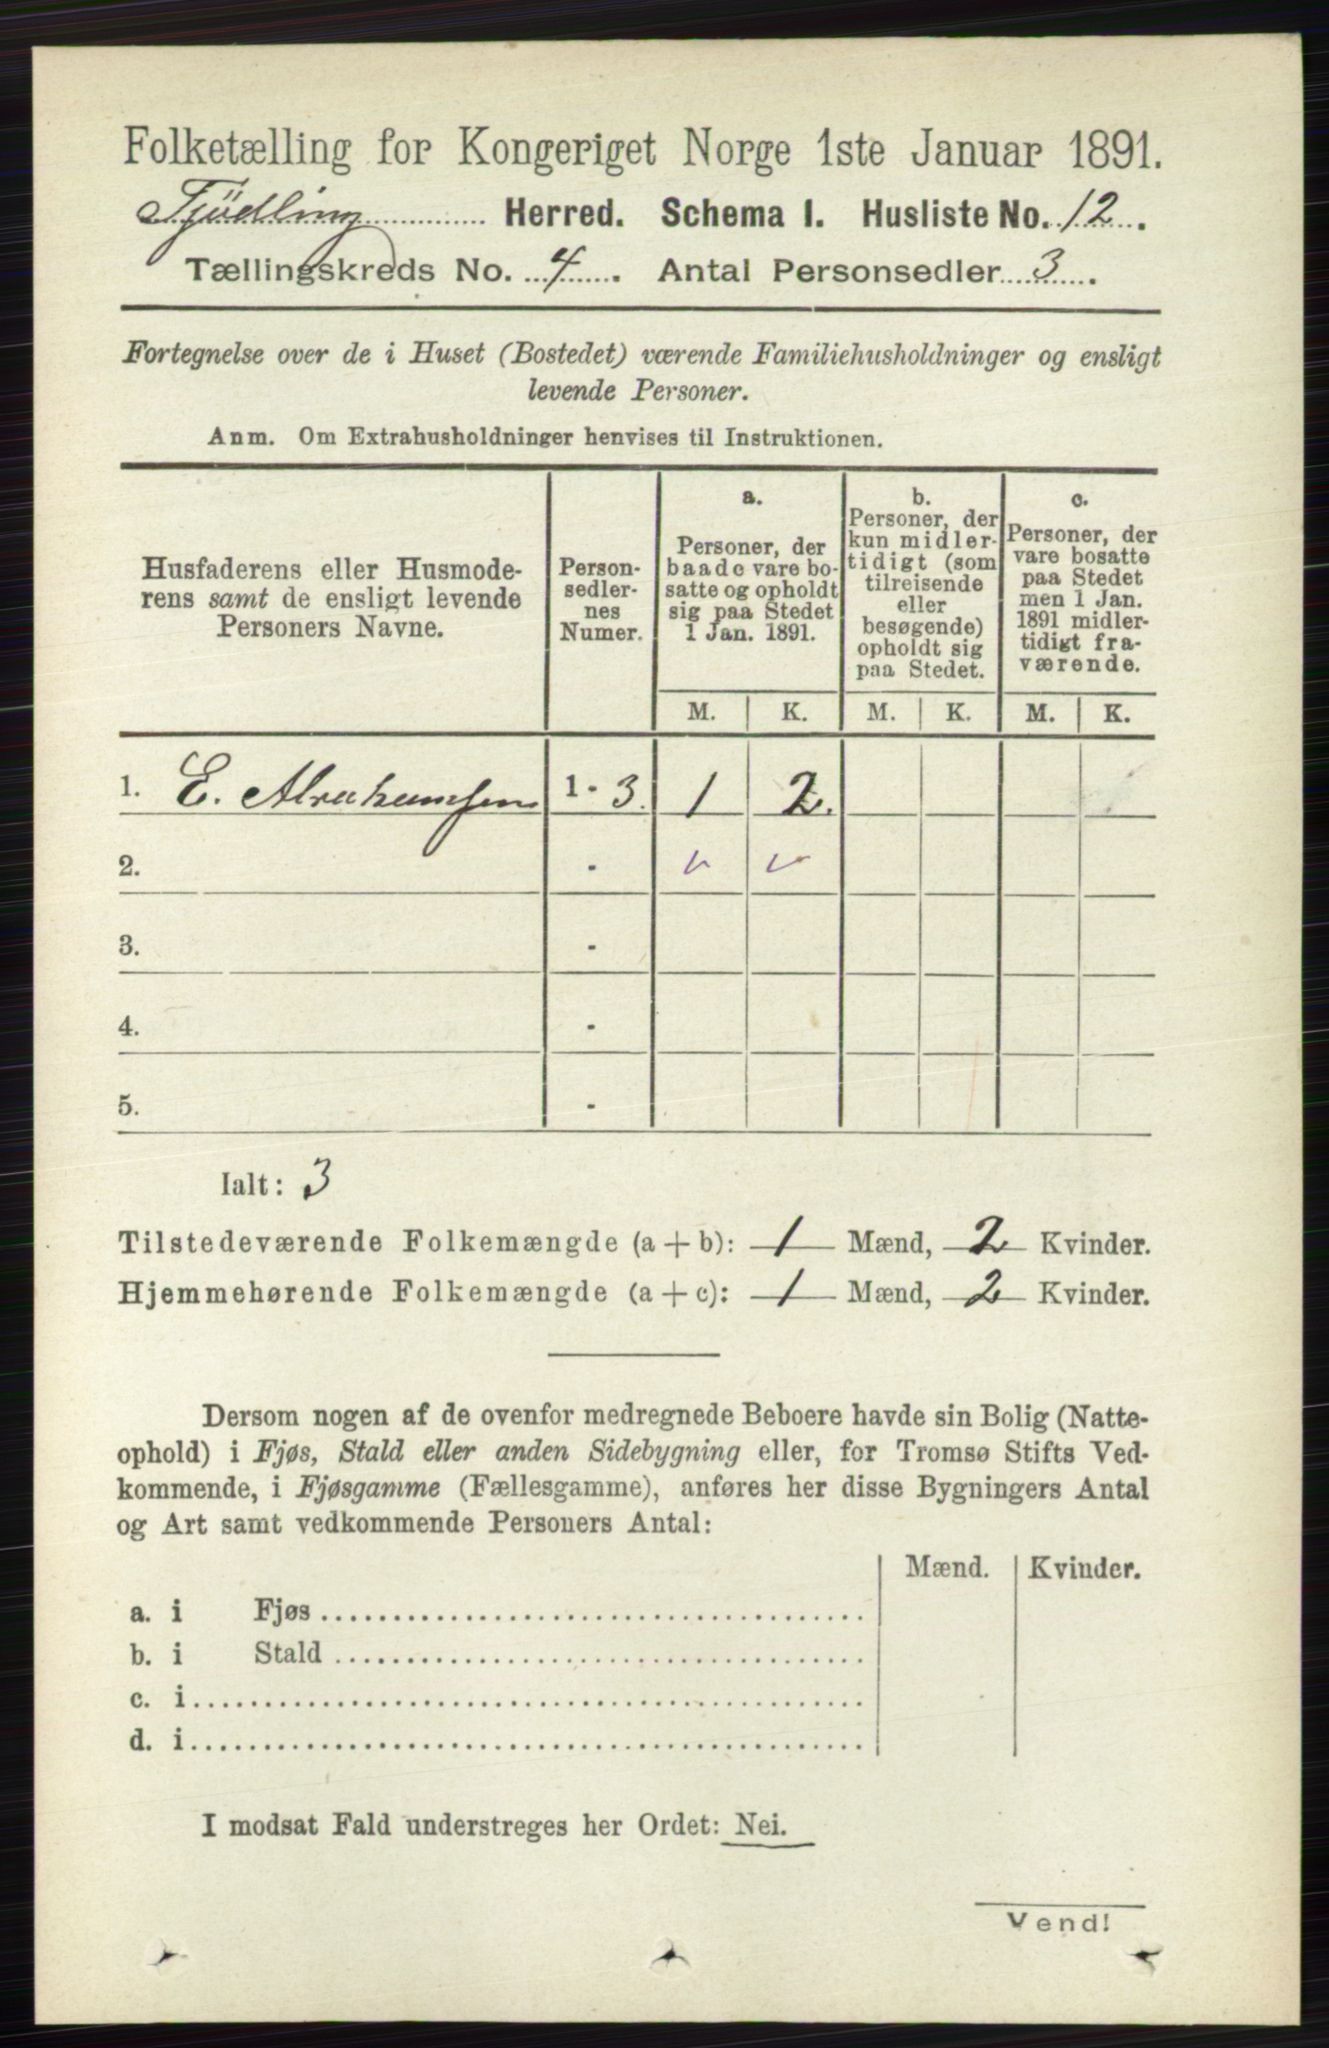 Folketælling for Kongeriget Norge 1ste Januar 1891.
Tjödling Herred. Schema 1. Husliste No. 12.
Tællingskreds No. 4. Antal Personsedler 3.
Fortegnelse over de i Huset (Bostedet) værende Familiehusholdninger og ensligt
levende Personer.
Anm. Om Extrahusholdninger henvises til Instruktionen.
Husfaderens eller Husmode-
rens samt de ensligt levende
Personers Navne.
Person-
sedler-
nes
Numer.
a.
Personer, der
baade vare bo-
satte og opholdt
sig paa Stedet
1 Jan. 1891.
b.
Personer, der
kun midler-
tidigt (som
tilreisende
eller
besøgende)
opholdt sig
paa Stedet.
c.
Personer, der
vare bosatte
paa Stedet
men 1 Jan.
1891 midler-
tidigt fra-
værende.
M. K. M. K. M. K.
1. E. Abrahamsen 1 - 3. 1 2.
2. -
3. -
4. -
5. -
Ialt: 3
Tilstedeværende Folkemængde (a + b): 1 Mænd, 2 Kvinder.
Hjemmehørende Folkemængde (a + c): 1 Mænd, 2 Kvinder.
Dersom nogen af de ovenfor medregnede Beboere havde sin Bolig (Natte-
ophold) i Fjøs, Stald eller anden Sidebygning eller, for Tromsø Stifts Ved-
kommende, i Fjøsgamme (Fællesgamme), anføres her disse Bygningers Antal
og Art samt vedkommende Personers Antal:
Mænd. Kvinder.
a. i Fjøs
b. i Stald
c. i
d. i
I modsat Fald understreges her Ordet: Nei.
Vend!